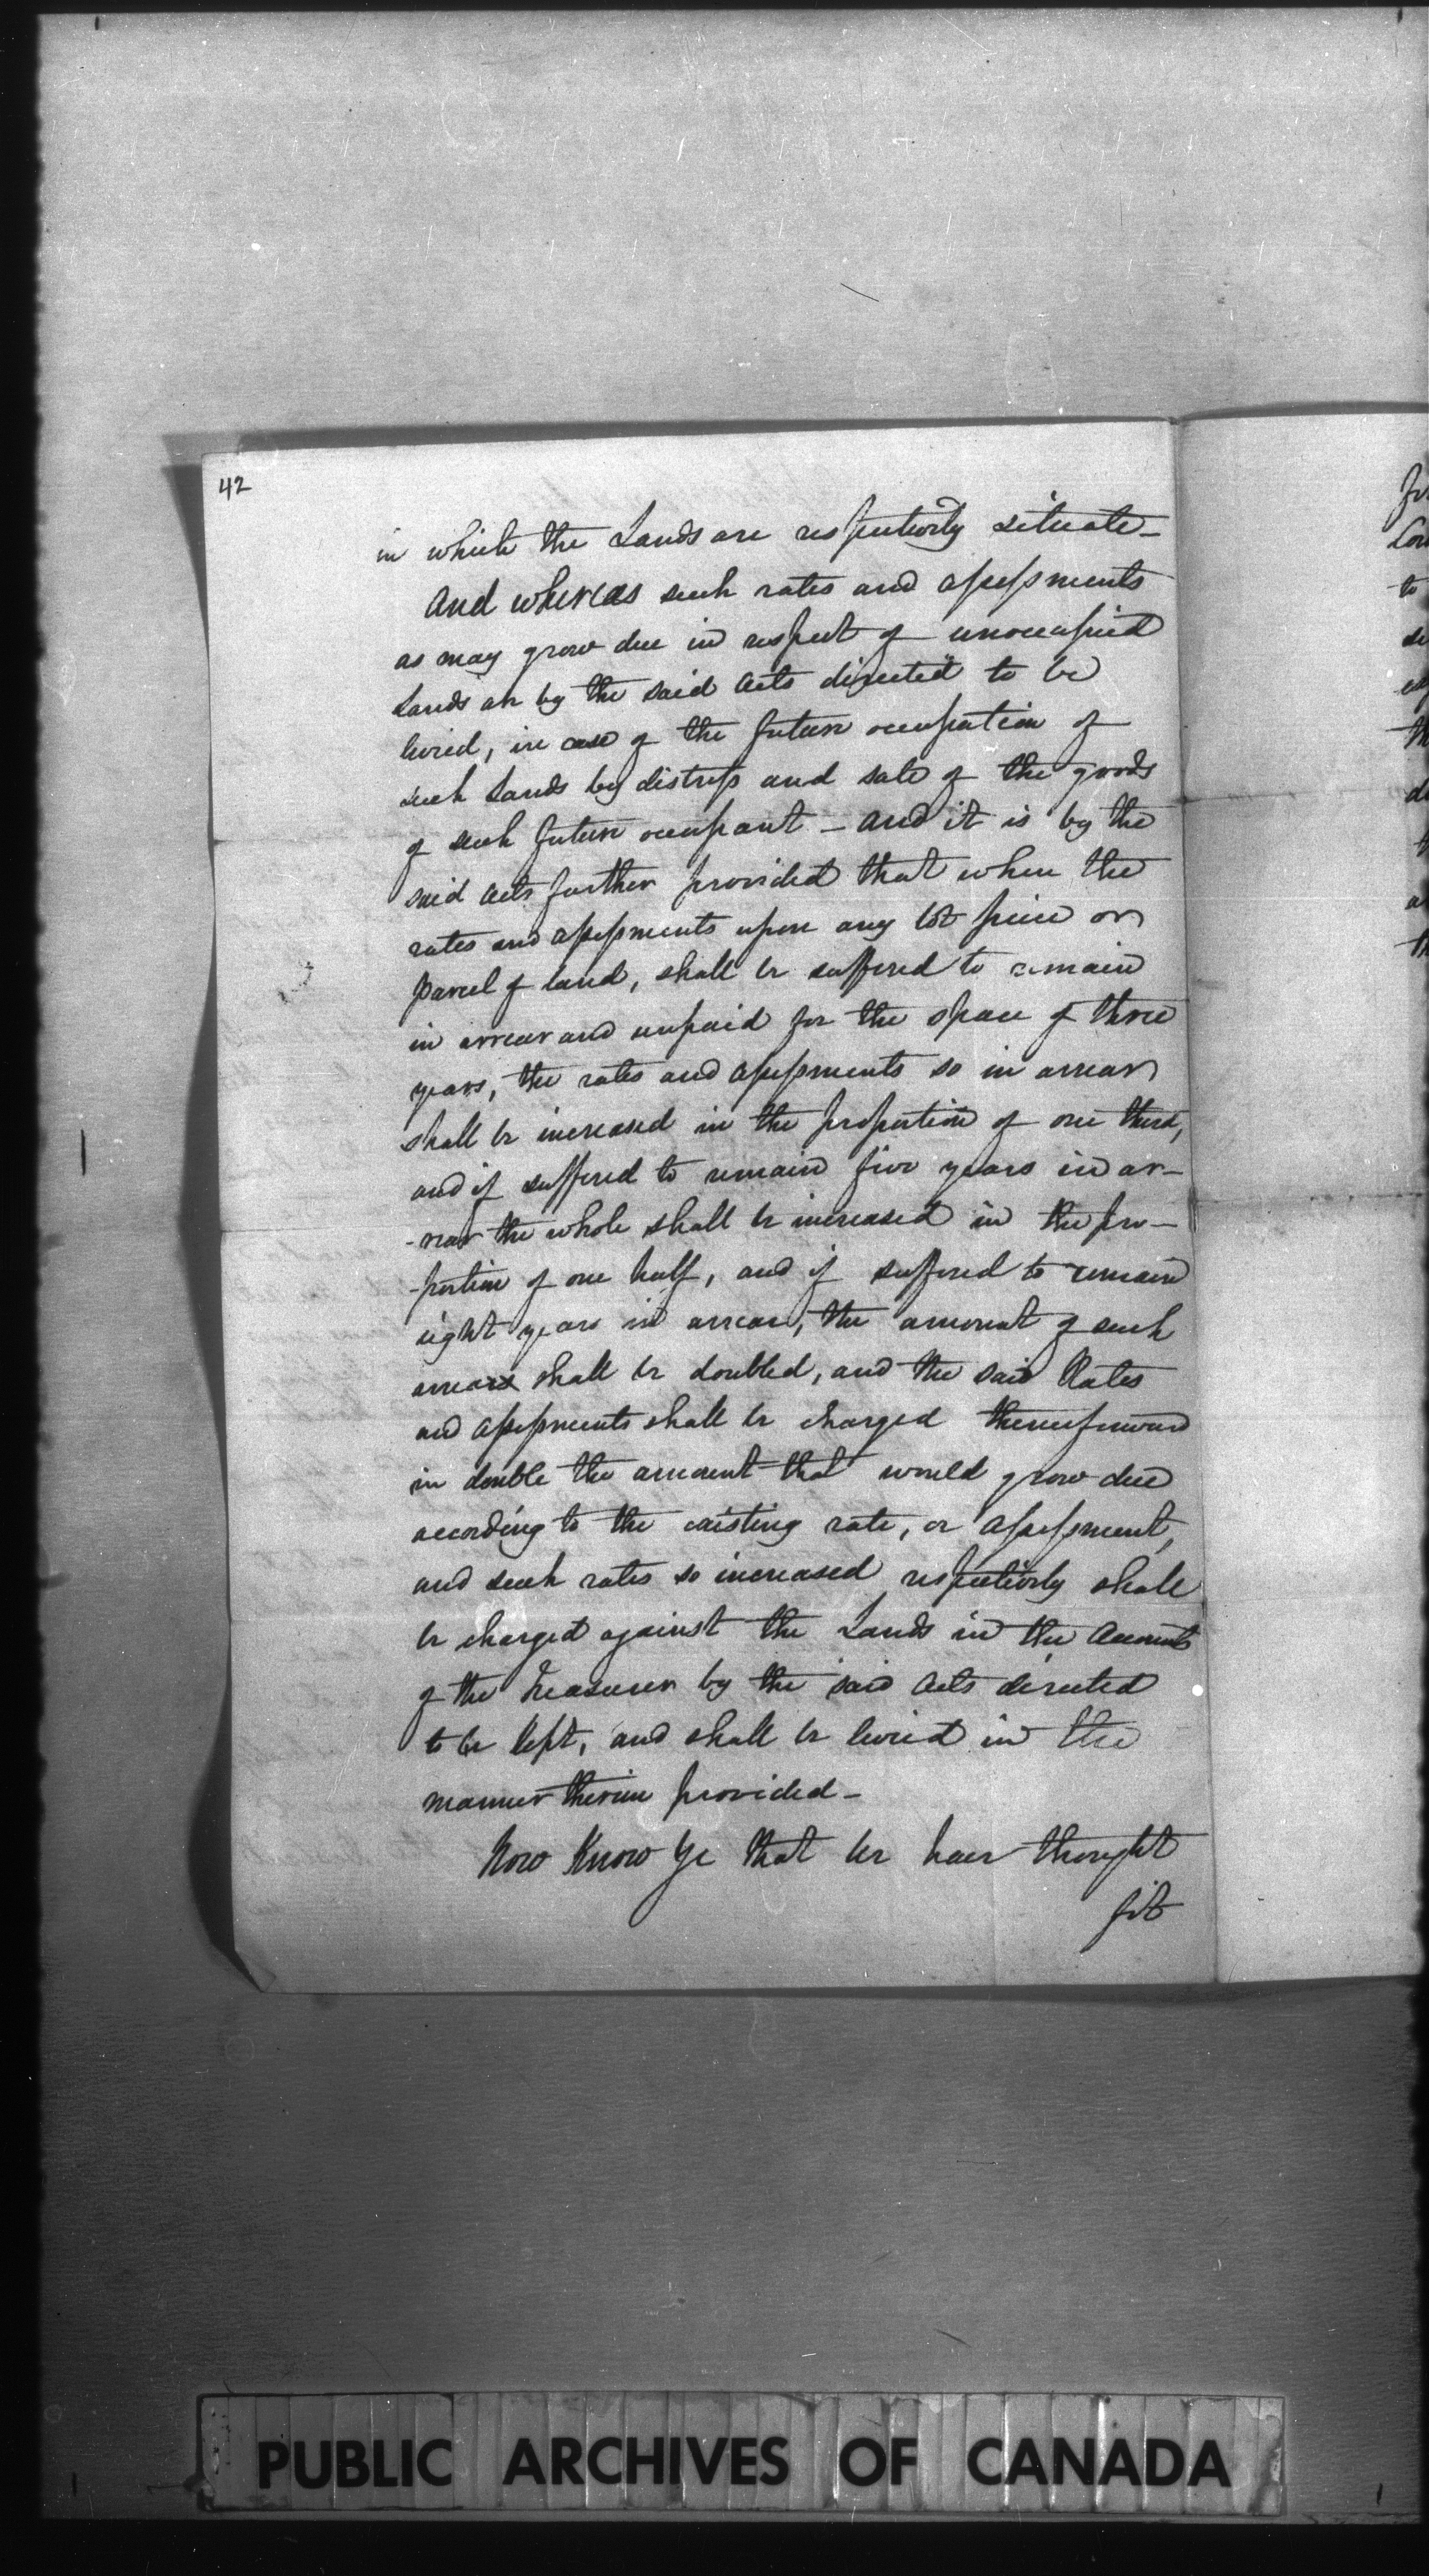 42
in which the Lands are respectively situate -
And whereas such rates and assessments
as may grow due in respect of unoccupied
Lands are by the said Acts directed to be
levied, in case of the future occupation of
such Lands by distress and sale of the goods
of such future occupant - and it is by the
said Acts further provided that when the
rates and assessments upon any lot piece or
parcel of land, shall be suffered to remain
in arrear and unpaid for the space of three
years, the rates and assessments so in arrear
shall be increased in the proportion of one third,
and if suffered to remain five years in ar-
-rear the whole shall be increased in the pro-
-portion of one half, and if suffered to remain
eight years in arrear, the amount of such
arrears shall be doubled, and the said Rates
and assessments shall be charged thenceforward
in double the amount that would grow due
according to the existing rate, or assessment,
and such rates so increased respectively shall
be charged against the Lands in the Accounts
of the Treasurer by the said Acts directed
to be kept, and shall be levied in the
manner therein provided -
Now Know Ye that we have thought
fit
PUBLIC ARCHIVES OF CANADA